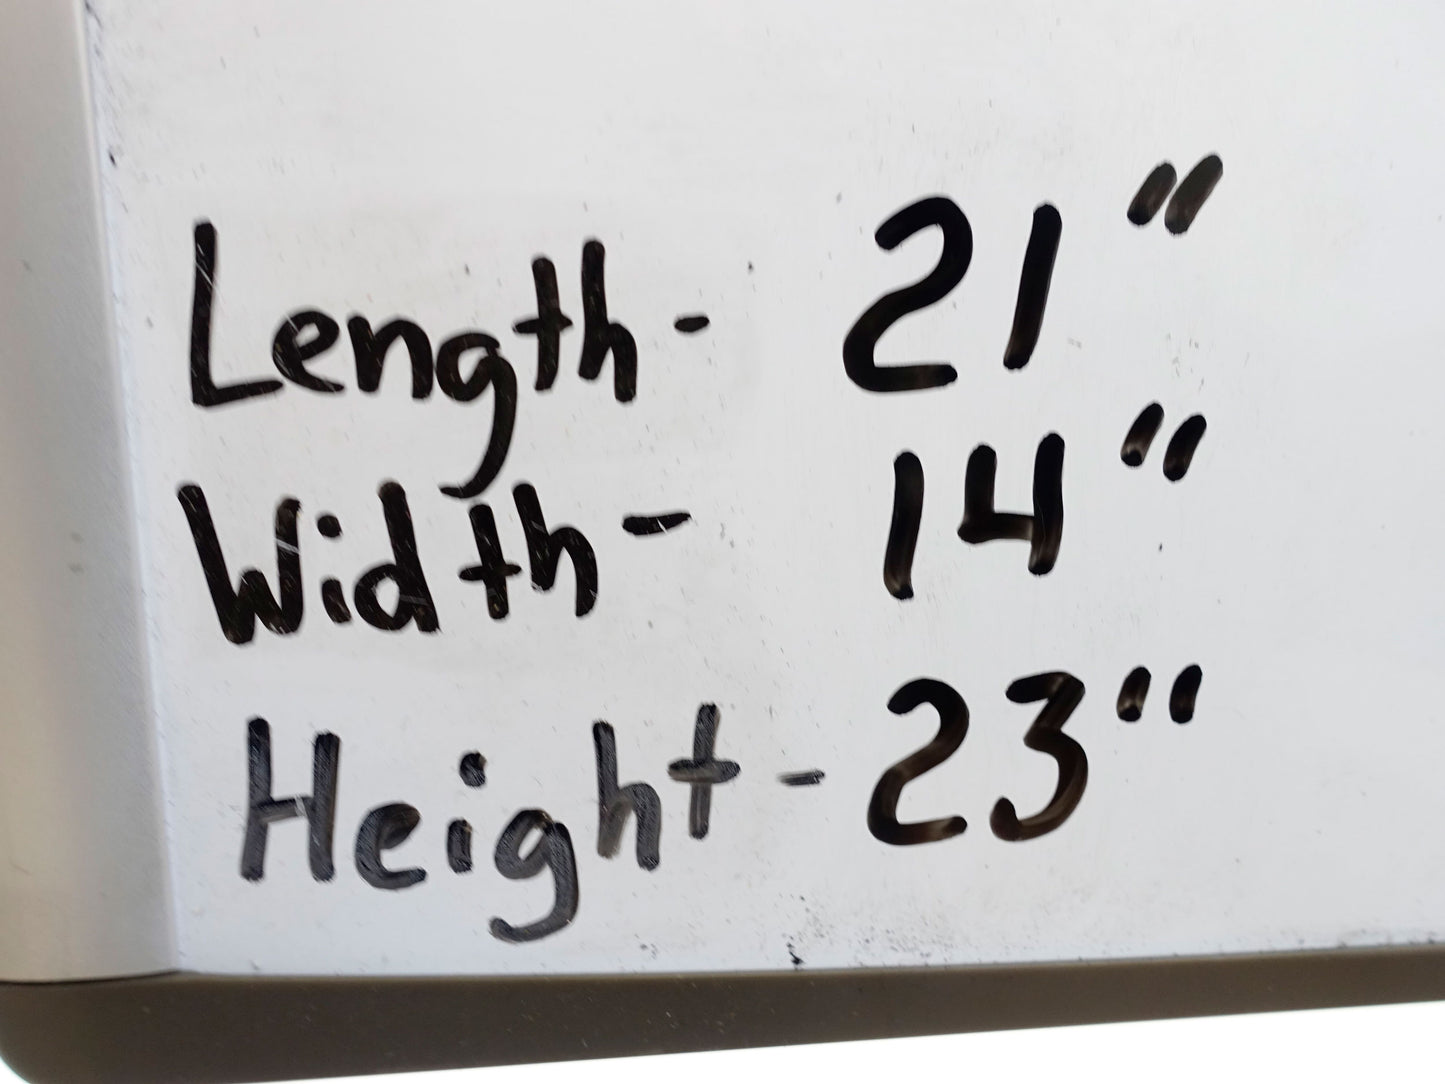 Length- 21"
Width- 14"
Height- 23"